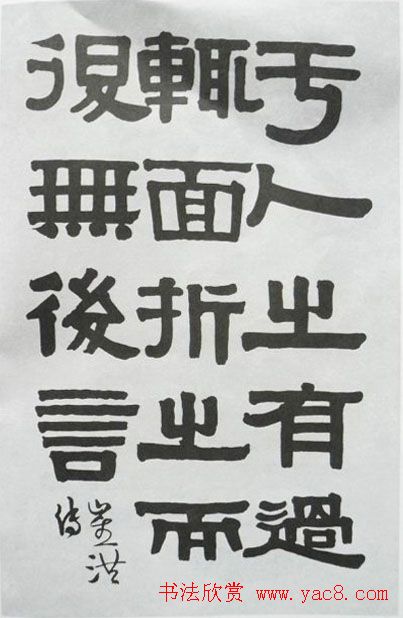 于人之有過
輒面折之而
退無後言
崔洪
傳
书法欣赏 www.yac8.com